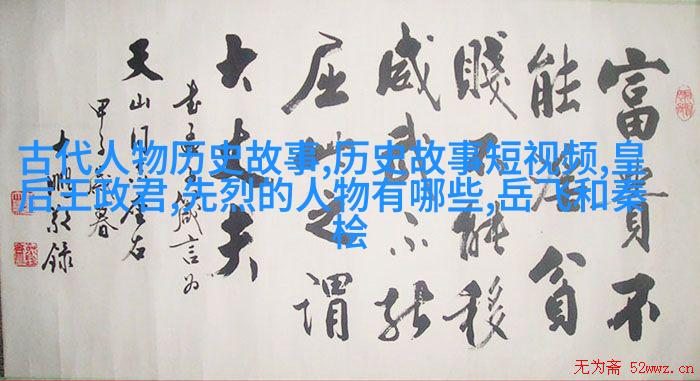 富貴不
能淫貧
賤不能移
威武不能
屈此之謂
大丈夫
孟子箴言为
天山座右
甲子歲暮
大鵬録
古代人物历史故事,历史故事短视频,皇
后王政君,先烈的人物有哪些,岳飞和秦
桧
无为斋 52wwz.cn